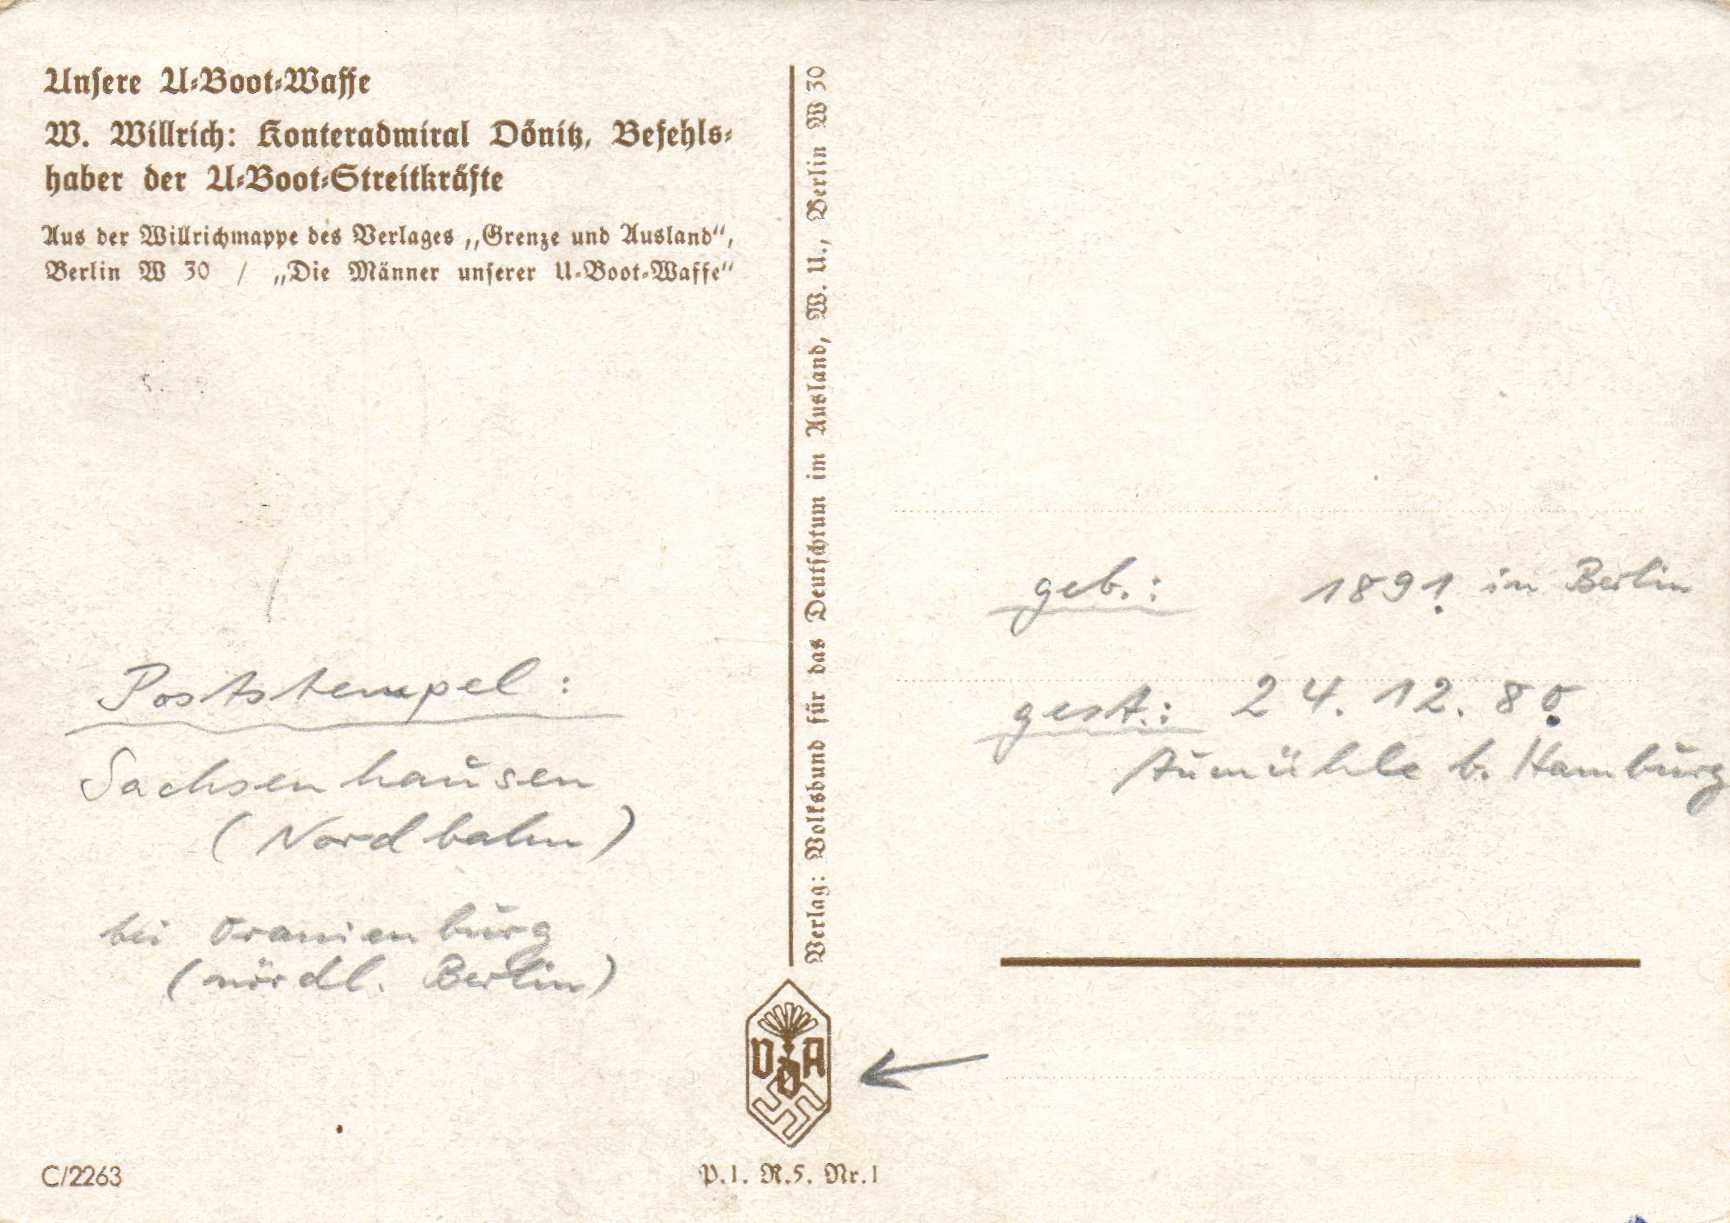 Unsere U-Boot-Waffe
W. Willrich: Konteradmiral Dönitz, Befehls-
haber der U-Boot-Streitkräfte
Aus der Willrichmappe des Verlages „Grenze und Ausland“,
Berlin W 30 / „Die Männer unserer U-Boot-Waffe“
Poststempel:
Sachsenhausen
(Nordbahn)
bei Oranienburg
(nördl. Berlin)
C/2263
Verlag: Volksbund für das Deutschtum im Ausland, W. U., Berlin W 30
VDA
P.1. R.5. Nr.1
geb.: 1891 in Berlin
gest.: 24.12.80
Aumühle b. Hamburg